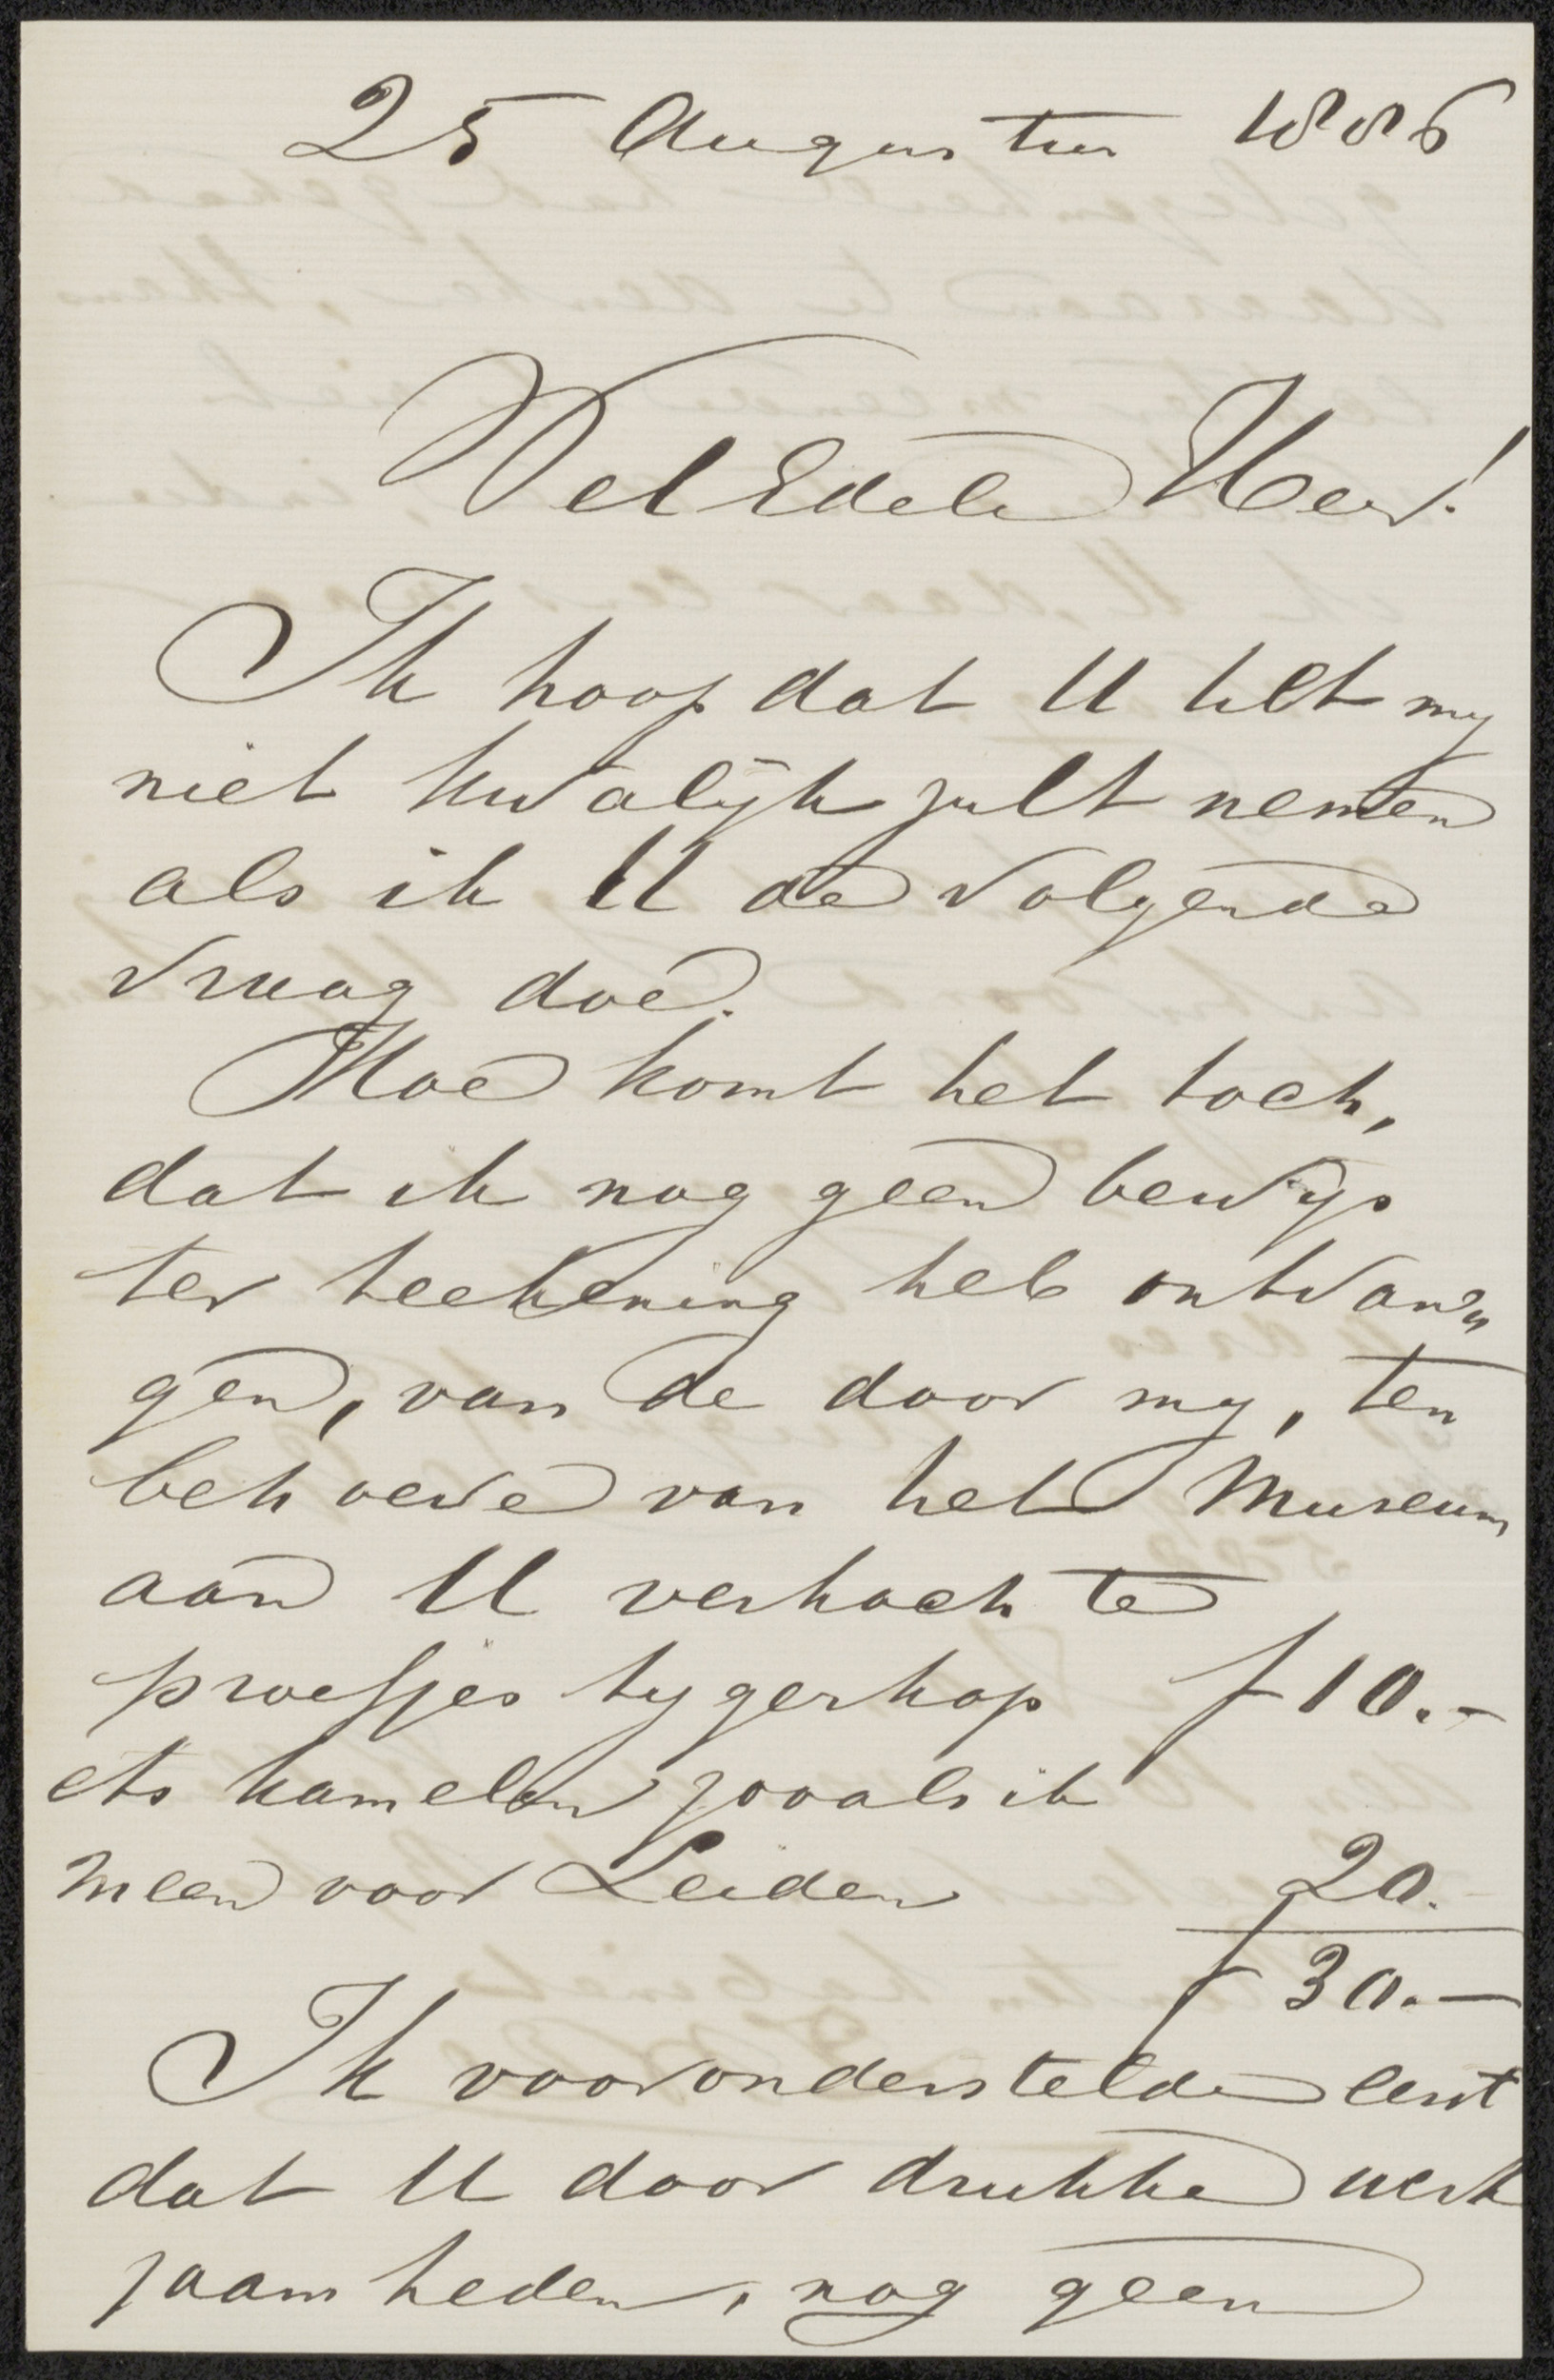 25 Augustus 1886
WelEdele Heer!
Ik hoop dat U het my
niet kwalijk zult nemen
als ik U de volgende
vraag doe.
Hoe komt het toch,
dat ik nog geen bewys
ter teekening heb ontvan„
gen, van de door my, ten
behoeve van het Museum
aan U verkochte
proefjes tygerkop f 10.-
ets kamelen zooals ik
meen voor Leiden 20.
f 30.—
Ik vooronderstelde eerst
dat U door drukke werk
zaamheden, nog geen